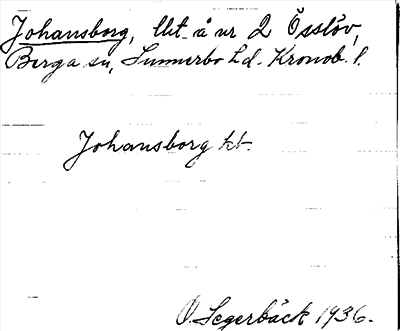 Johansborg, lht å nr 2 Össlöv,
Berga sn, Sunnerbo hd. Kronob. l.
Johansborg hb.
O. Segerbäck 1936.